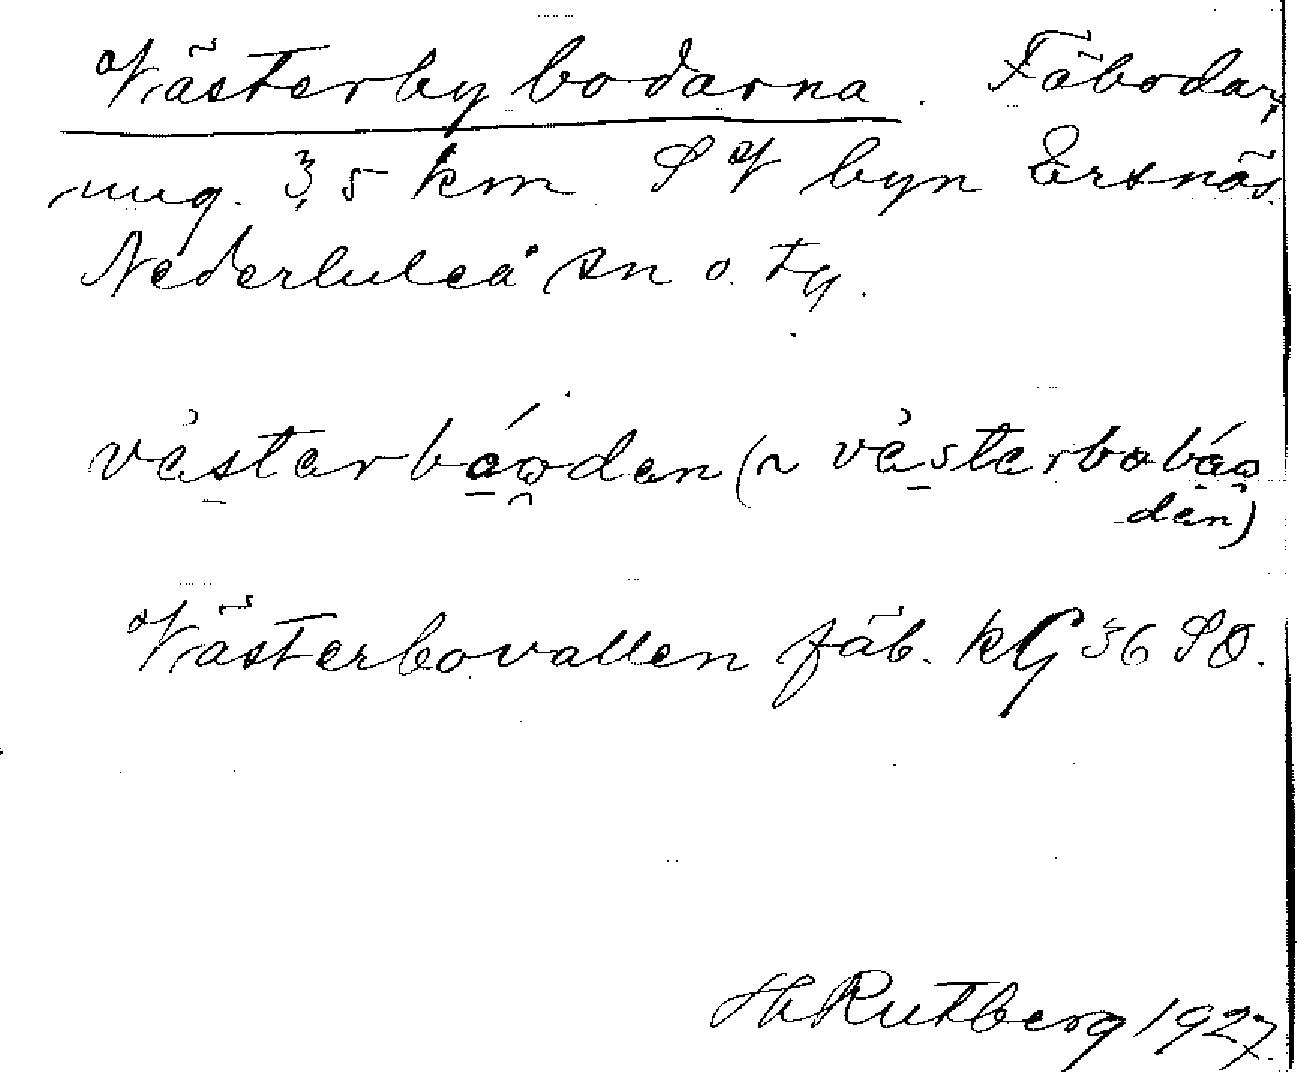 Västerbybodarna. Fäbodar,
ung. 3,5 km SV byn Ersnäs.
Nederluleå sn o. tg.
västarbáoden (~ västerbobáo
den)
Västerbovallen fäb. kG 36 SO.
H Rutberg 1927